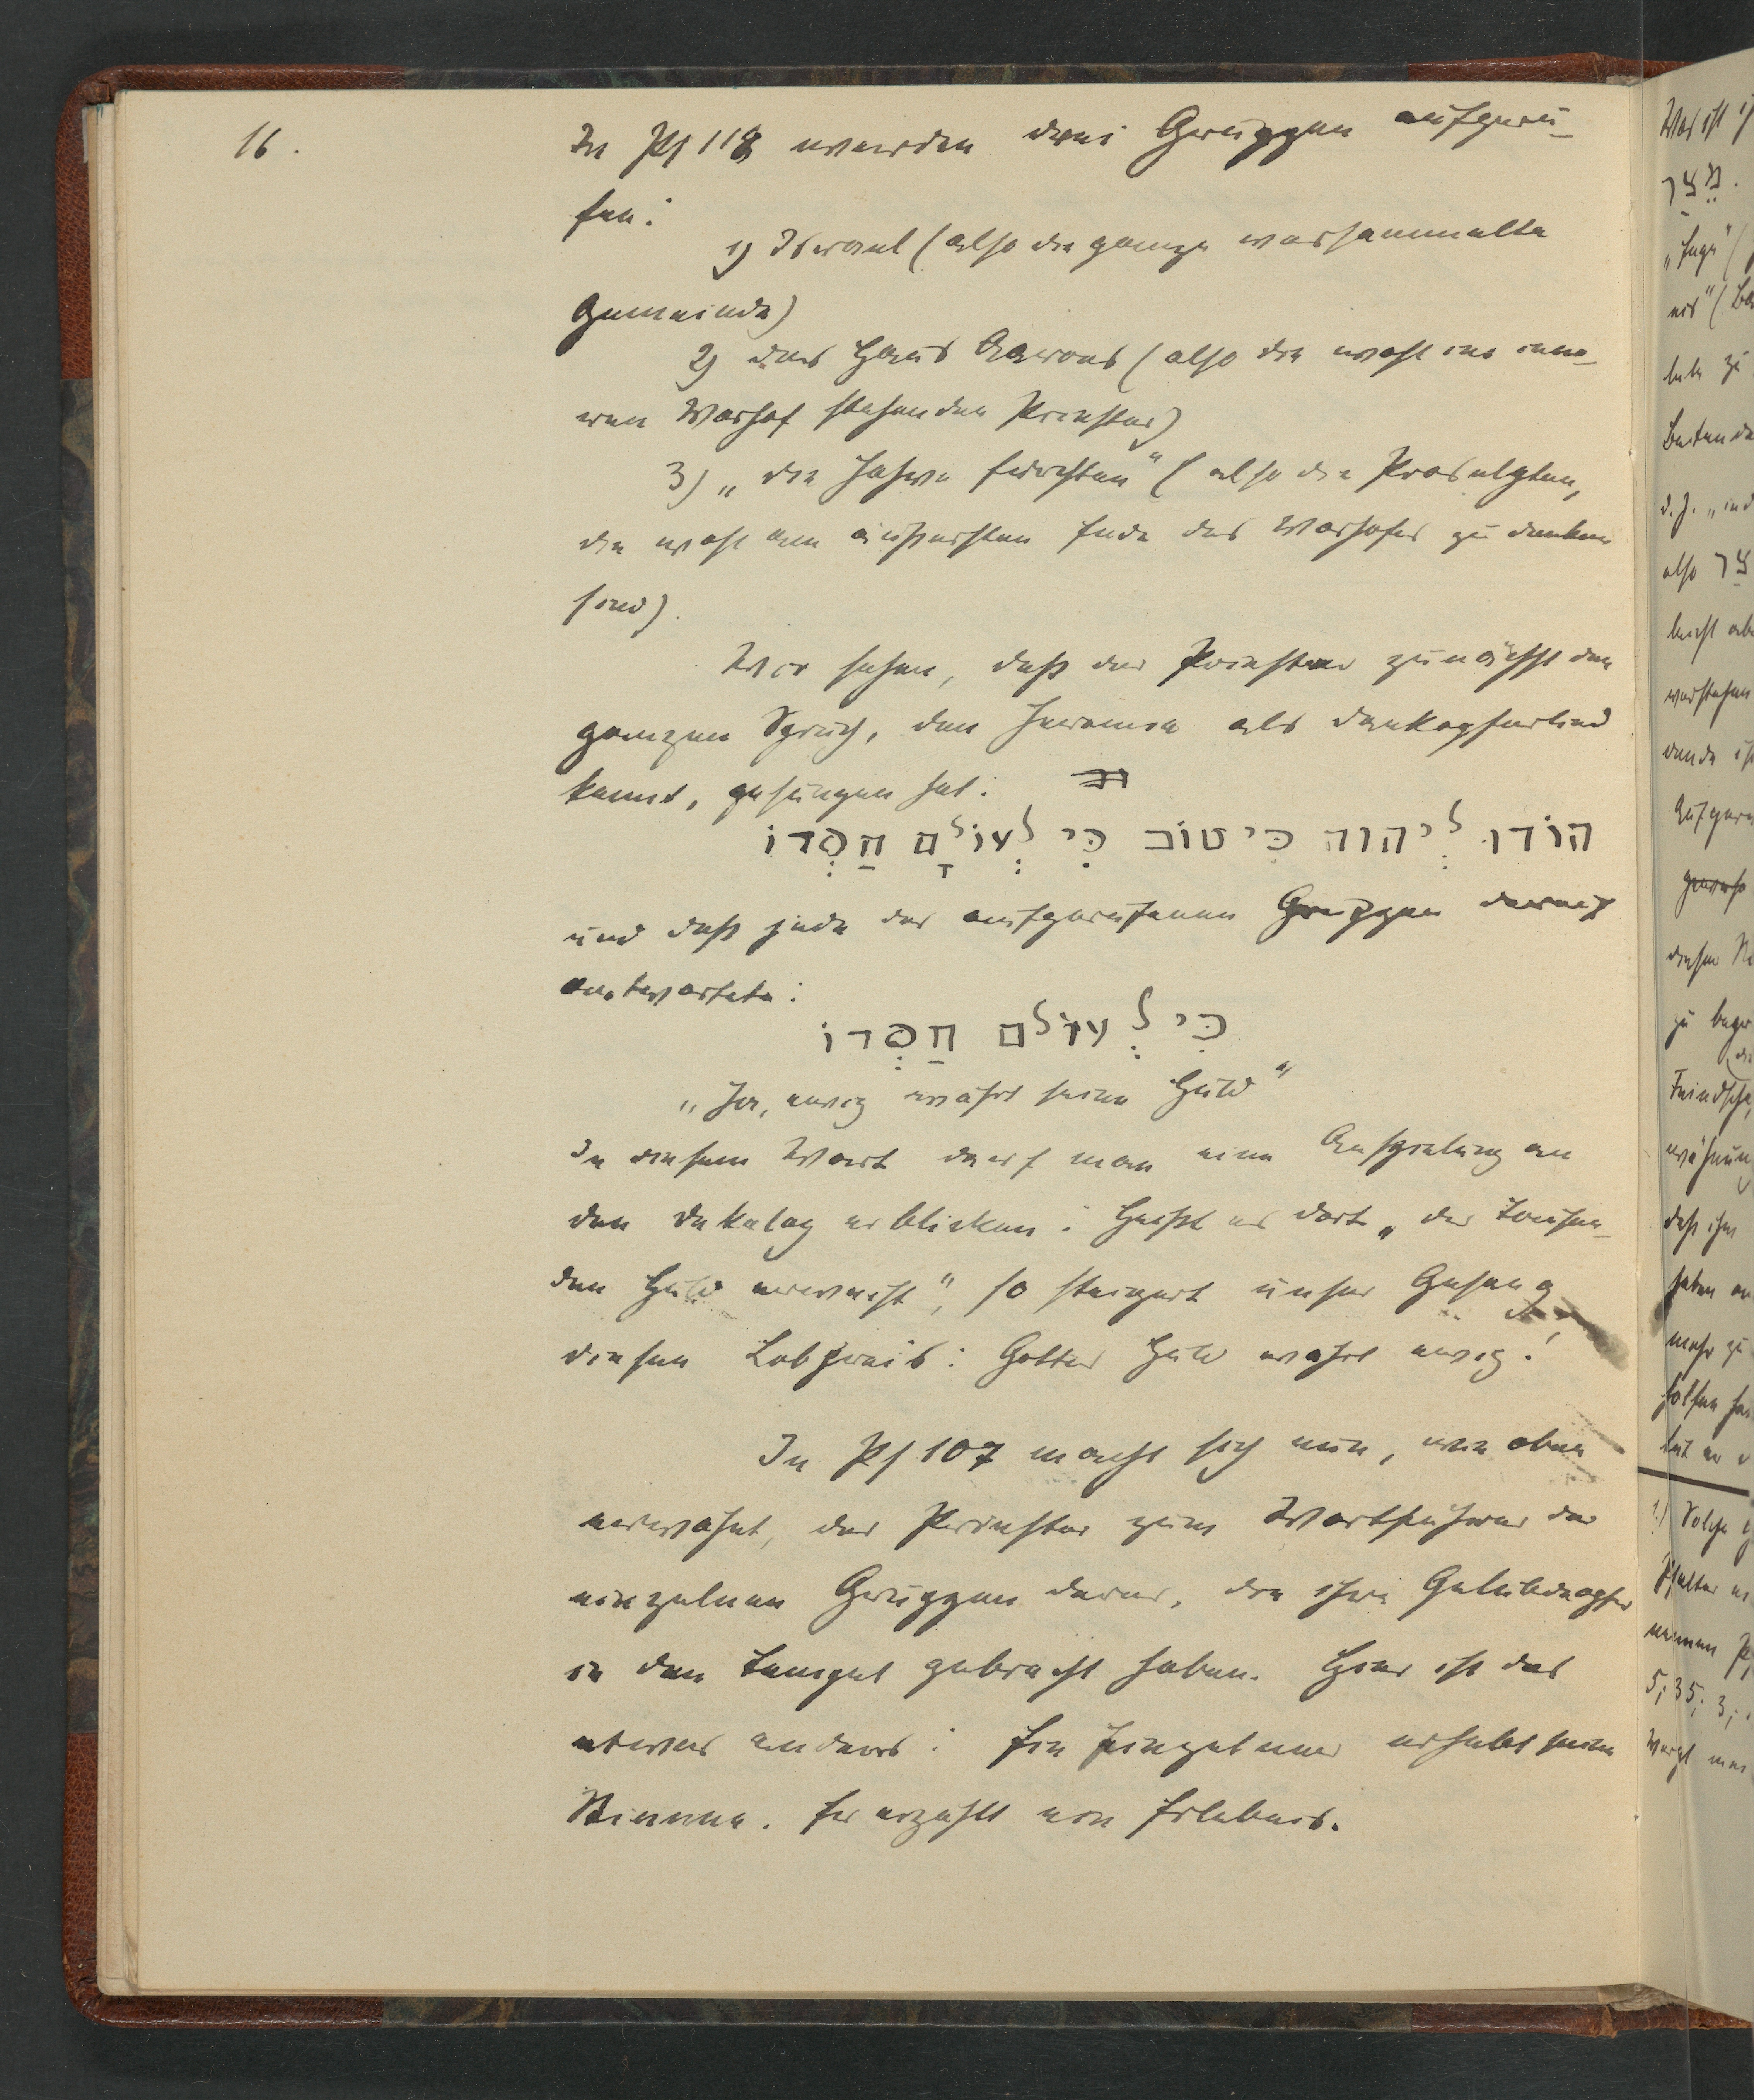 16.
In Ps 118 werden drei Gruppen aufgeru-
fen:
1) Israel (also die ganze versammelte
Gemeinde)
2) das Haus Aarons (also die wohl im inne-
ren Vorhof stehenden Priester)
3) „die Jahwe fürchten" (also die Proselyten,
die wohl am äußersten Ende des Vorhofes zu denken
sind).
Wir sehen, daß der Priester zunächst den
ganzen Spruch, den Jeremia als Dankopferlied
kennt, gesungen hat:
הוֹדוּ לְיהוה כִּי טוֹב כִּי לְעוֹלָם חַסְדּוֹ
und daß jede der aufgerufenen Gruppen darauf
antwortete:
כִּי לְעוֹלם חַסְדוֹ
„Ja, ewig währt seine Huld"
In diesem Wort darf man eine Anspielung an
den Dekalog erblicken: Heißt es dort „der Tausen-
den Huld erweist", so steigert unser Gesang
diesen Lobpreis: Gottes Huld währt ewig!
In Ps 107 macht sich nun, wie oben
erwähnt, der Priester zum Wortführer der
einzelnen Gruppen derer, die ihre Gelübdeopfer
in den Tempel gebracht haben. Hier ist das
etwas anders: Ein Einzelner erhebt seine
Stimme. Er erzählt ein Erlebnis.
Was ist
מֵצַר
also צַר
verstehen
diesen
Feindscha
daß ihm
haben
mehr zu
1.) Solche
Psalter
5; 35; 3;